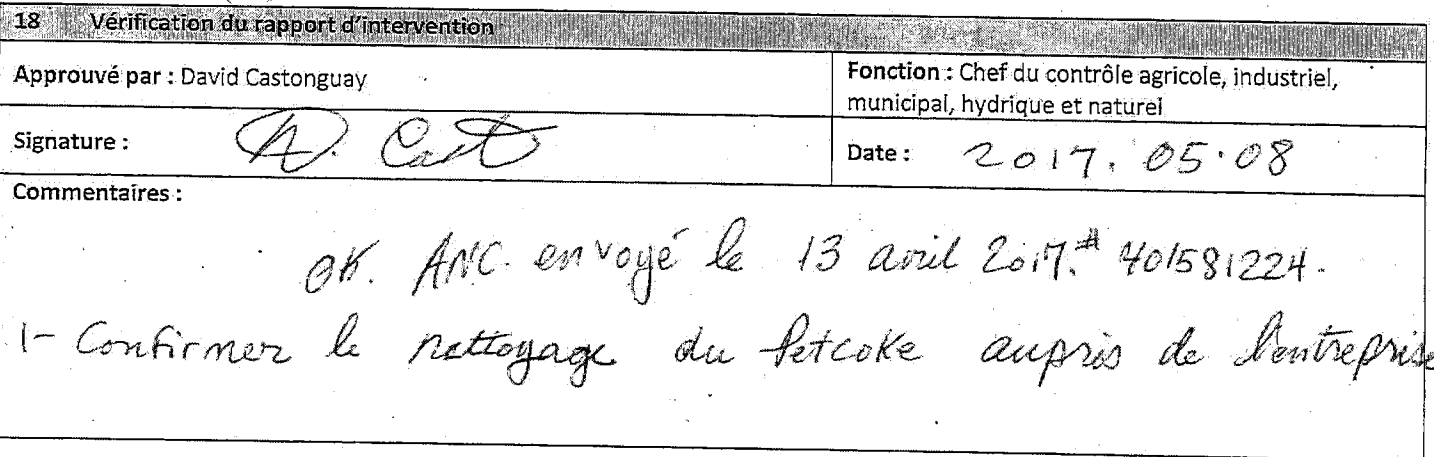 18 Vérification du rapport d'intervention
Approuvé par : David Castonguay
Fonction : Chef du contrôle agricole, industriel,
municipal, hydrique et naturel
Signature : D. Cast
Date : 2017.05.08
Commentaires :
OK. ANC. envoyé le 13 avril 2017. # 401581224.
1- Confirmer le nettoyage du Petcoke auprès de l'entreprise